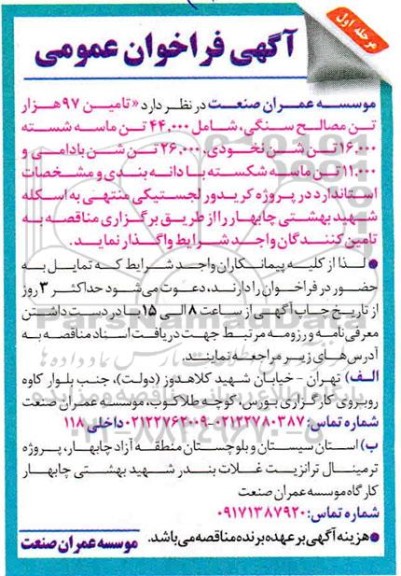 مرحله اول
آگهی فراخوان عمومی
موسسه عمران صنعت در نظر دارد «تامین ۹۷ هزار
تن مصالح سنگی، شامل ۴۴,۰۰۰ تن ماسه شسته
۱۶,۰۰۰ تن شن نخودی، ۲۶,۰۰۰ تن شن بادامی و
۱۱,۰۰۰ تن ماسه شکسته با دانه بندی و مشخصات
استاندارد در پروژه کریدور لجستیکی منتهی به اسکله
شهید بهشتی چابهار را از طریق برگزاری مناقصه به
تامین کنندگان واجد شرایط واگذار نماید.
● لذا از کلیه پیمانکاران واجد شرایط که تمایل به
حضور در فراخوان را دارند، دعوت می شود حداکثر ۳ روز
از تاریخ چاپ آگهی از ساعت ۸ الی ۱۵ با در دست داشتن
معرفی نامه و رزومه مرتبط جهت دریافت اسناد مناقصه به
آدرس های زیر مراجعه نمایند.
الف) تهران - خیابان شهید کلاهدوز (دولت)، جنب بلوار کاوه
روبروی کارگزاری بورس، کوچه طلاکوب، موسسه عمران صنعت
شماره تماس: ۰۲۱۲۲۷۸۰۳۸۷-۰۲۱۲۲۷۶۲۰۰۹ داخلی ۱۱۸
ب) استان سیستان و بلوچستان منطقه آزاد چابهار، پروژه
ترمینال ترانزیت غلات بندر شهید بهشتی چابهار
کارگاه موسسه عمران صنعت
شماره تماس: ۰۹۱۷۱۳۸۷۹۲۰
● هزینه آگهی بر عهده برنده مناقصه می باشد.
موسسه عمران صنعت